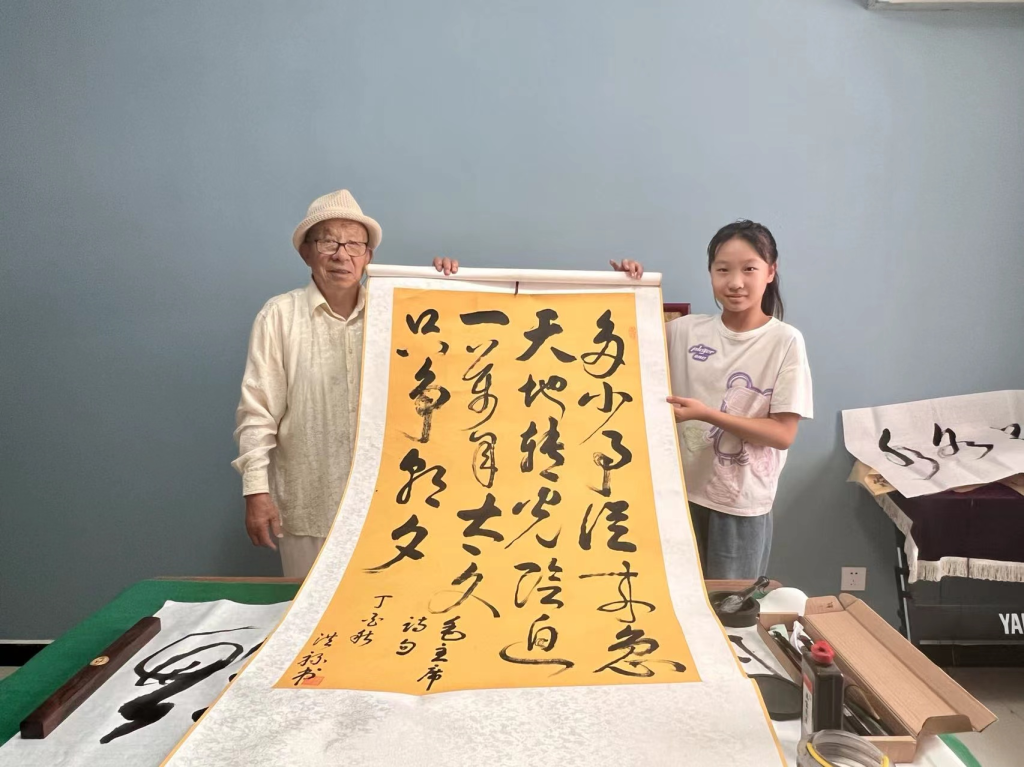 多少事從來急
天地轉光陰迫
一萬年太久
毛主席
詩句
只爭朝夕
丁酉秋
洪 书
YA